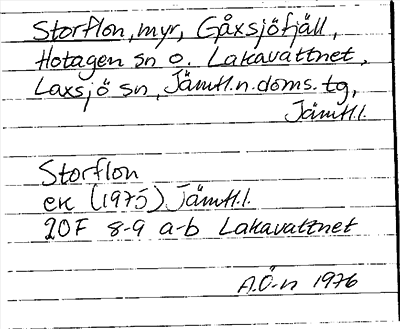 Storflon, myr, Gåxsjöfjäll,
Hotagen sn o. Lakavattnet,
Laxsjö sn, Jämtl.n.doms.tg,
Jämtl.l.
Storflon
ek (1975) Jämtl.l.
20F 8-9 a-b Lakavattnet
A.Ö-n 1976